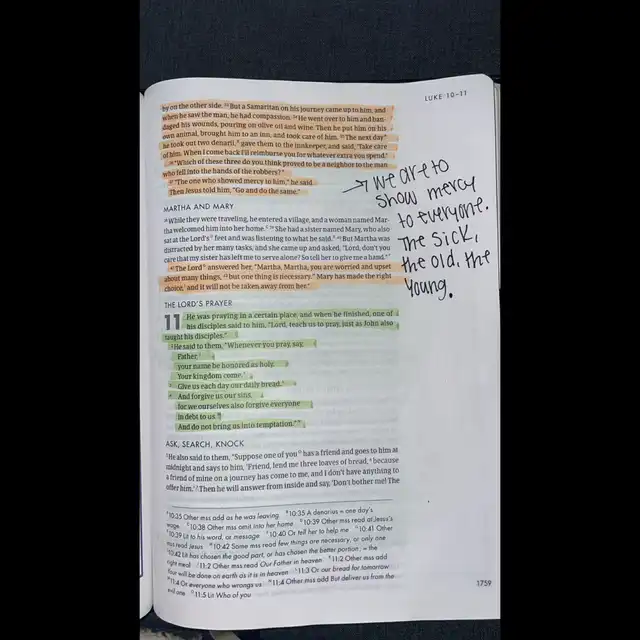 LUKE 10–11
by on the other side. 33 But a Samaritan on his journey came up to him, and
when he saw the man, he had compassion. 34 He went over to him and ban-
daged his wounds, pouring on olive oil and wine. Then he put him on his
own animal, brought him to an inn, and took care of him. 35 The next day
he took out two denarii, gave them to the innkeeper, and said, 'Take care
of him. When I come back I'll reimburse you for whatever extra you spend.'
36 "Which of these three do you think proved to be a neighbor to the man
who fell into the hands of the robbers?"
37 "The one who showed mercy to him," he said.
Then Jesus told him, "Go and do the same."
→ we are to
show mercy
to everyone.
The sick,
the old, the
young.
MARTHA AND MARY
38 While they were traveling, he entered a village, and a woman named Mar-
tha welcomed him into her home. 39 She had a sister named Mary, who also
sat at the Lord's feet and was listening to what he said. 40 But Martha was
distracted by her many tasks, and she came up and asked, "Lord, don't you
care that my sister has left me to serve alone? So tell her to give me a hand."
41 The Lord answered her, "Martha, Martha, you are worried and upset
about many things, 42 but one thing is necessary. Mary has made the right
choice, and it will not be taken away from her."
THE LORD'S PRAYER
11 He was praying in a certain place, and when he finished, one of
his disciples said to him, "Lord, teach us to pray, just as John also
taught his disciples."
2 He said to them, "Whenever you pray, say,
Father,
your name be honored as holy.
Your kingdom come.
3 Give us each day our daily bread.
4 And forgive us our sins,
for we ourselves also forgive everyone
in debt to us.
And do not bring us into temptation."
ASK, SEARCH, KNOCK
5 He also said to them, "Suppose one of you has a friend and goes to him at
midnight and says to him, 'Friend, lend me three loaves of bread, 6 because
a friend of mine on a journey has come to me, and I don't have anything to
offer him.' 7 Then he will answer from inside and say, 'Don't bother me! The
10:35 Other mss add as he was leaving 10:35 A denarius = one day's
wage 10:38 Other mss omit into her home 10:39 Other mss read at Jesus's
10:39 Lit to his word, or message 10:40 Or tell her to help me 10:41 Other
mss read Jesus 10:42 Some mss read few things are necessary, or only one
10:42 Lit has chosen the good part, or has chosen the better portion; = the
right meal 11:2 Other mss read Our Father in heaven 11:2 Other mss add
Your will be done on earth as it is in heaven 11:3 Or our bread for tomorrow
11:4 Or everyone who wrongs us 11:4 Other mss add But deliver us from the
evil one 11:5 Lit Who of you
1759